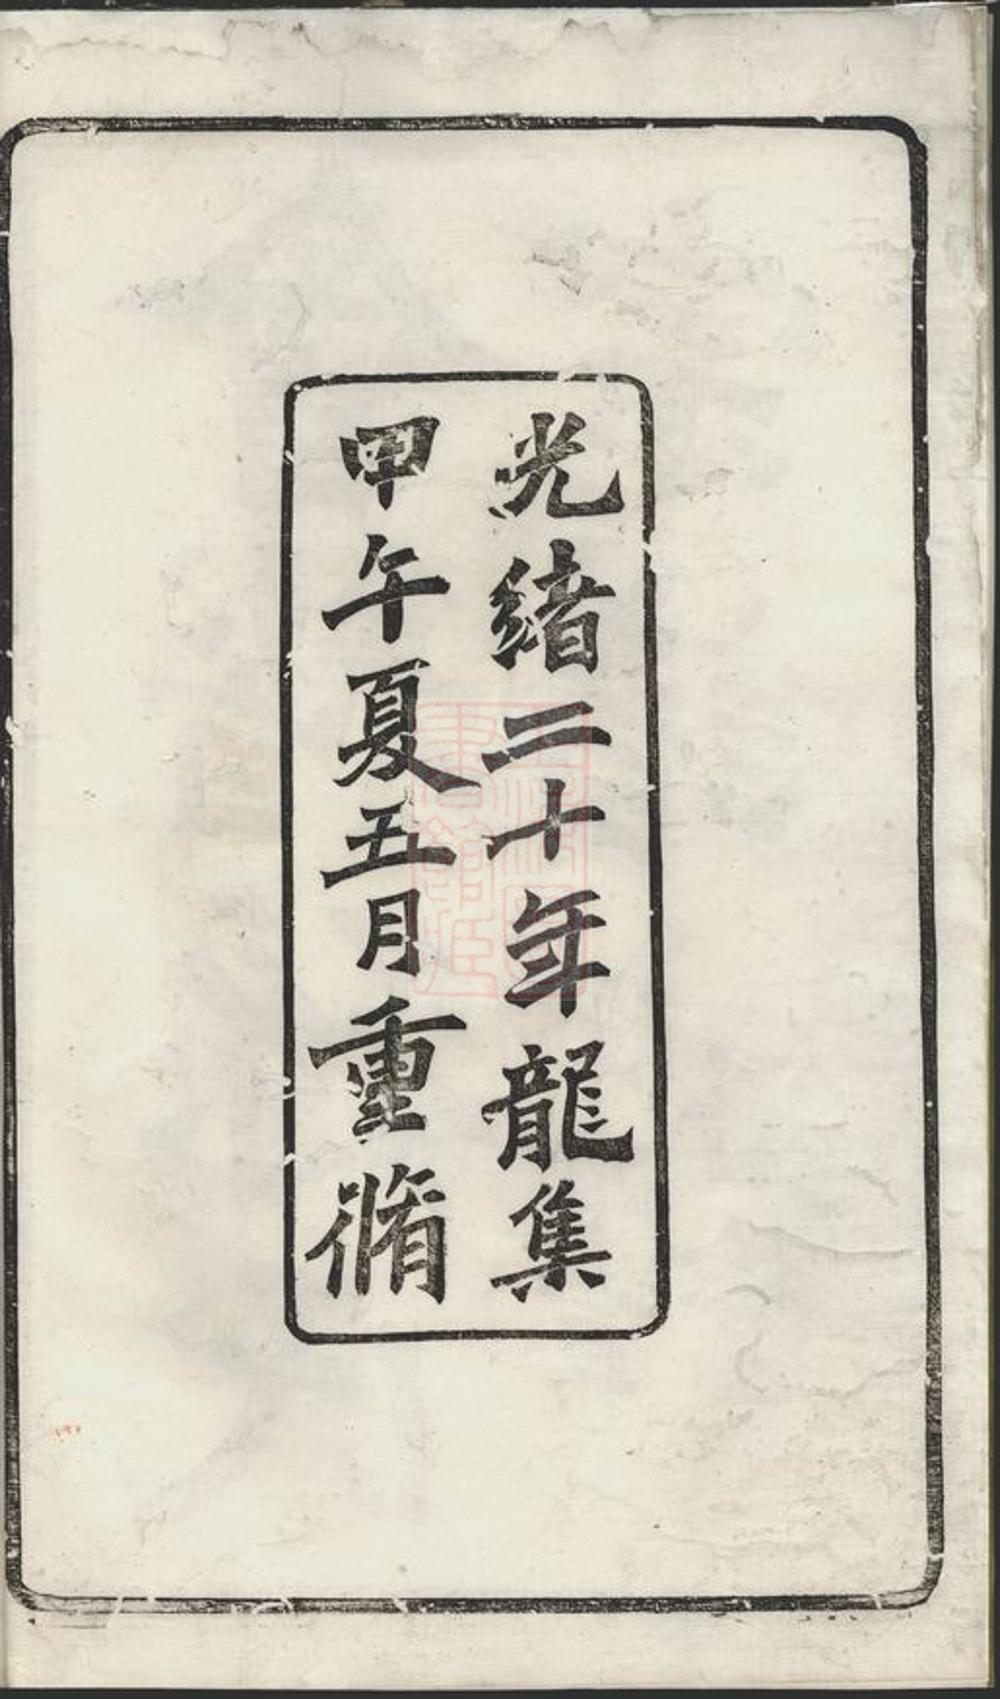 光緒二十年龍集
甲午夏五月重脩